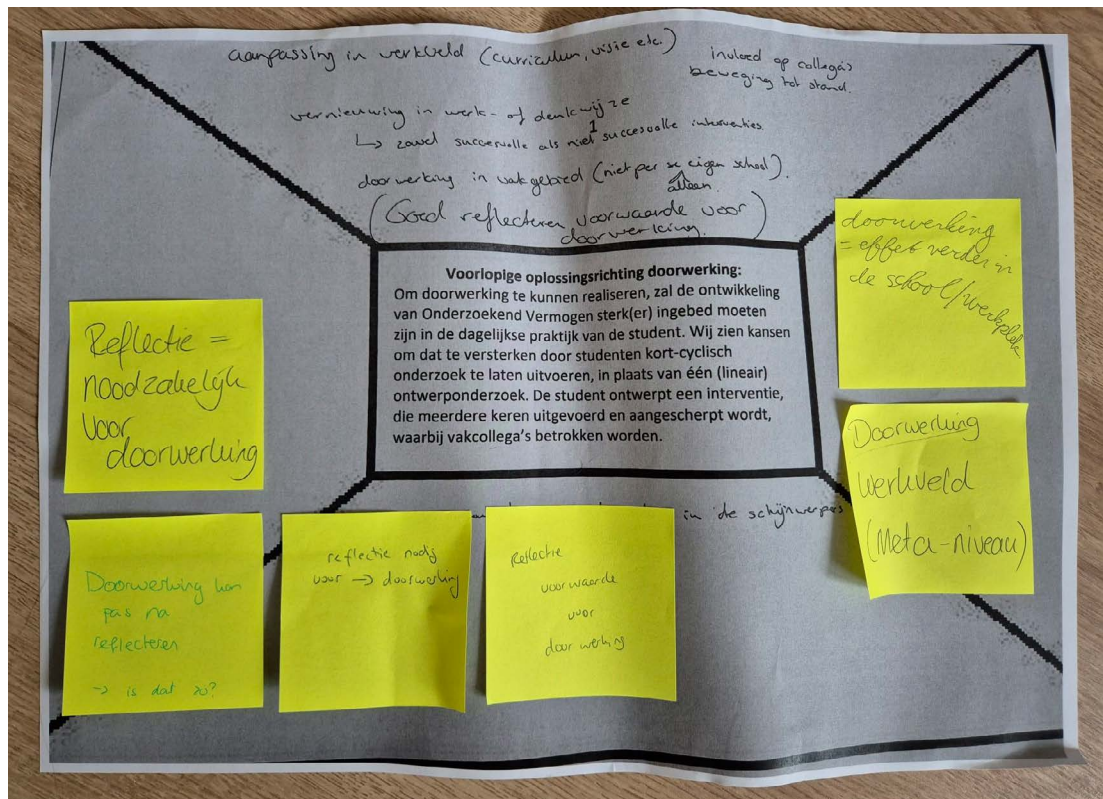 aanpassing in werkveld (curriculum, visie etc.)
invloed op collega's
beweging tot stand.
vernieuwing in werk- of denkwijze
↳ zowel succesvolle als niet succesvolle interventies.
doorwerking in vakgebied (niet per se eigen school).
alleen
(Goed reflecteren voorwaarde voor
doorwerking.)
Voorlopige oplossingsrichting doorwerking:
Om doorwerking te kunnen realiseren, zal de ontwikkeling
van Onderzoekend Vermogen sterk(er) ingebed moeten
zijn in de dagelijkse praktijk van de student. Wij zien kansen
om dat te versterken door studenten kort-cyclisch
onderzoek te laten uitvoeren, in plaats van één (lineair)
ontwerponderzoek. De student ontwerpt een interventie,
die meerdere keren uitgevoerd en aangescherpt wordt,
waarbij vakcollega's betrokken worden.
doorwerking
= effect verder in
de school/werkplek
Reflectie =
noodzakelijk
voor
doorwerking
Doorwerking
Werkveld
(Meta-niveau)
in de schijnwerpers
Doorwerking kan
pas na
reflecteren
-> is dat zo?
reflectie nodig
voor → doorwerking
Reflectie
voorwaarde
voor
doorwerking